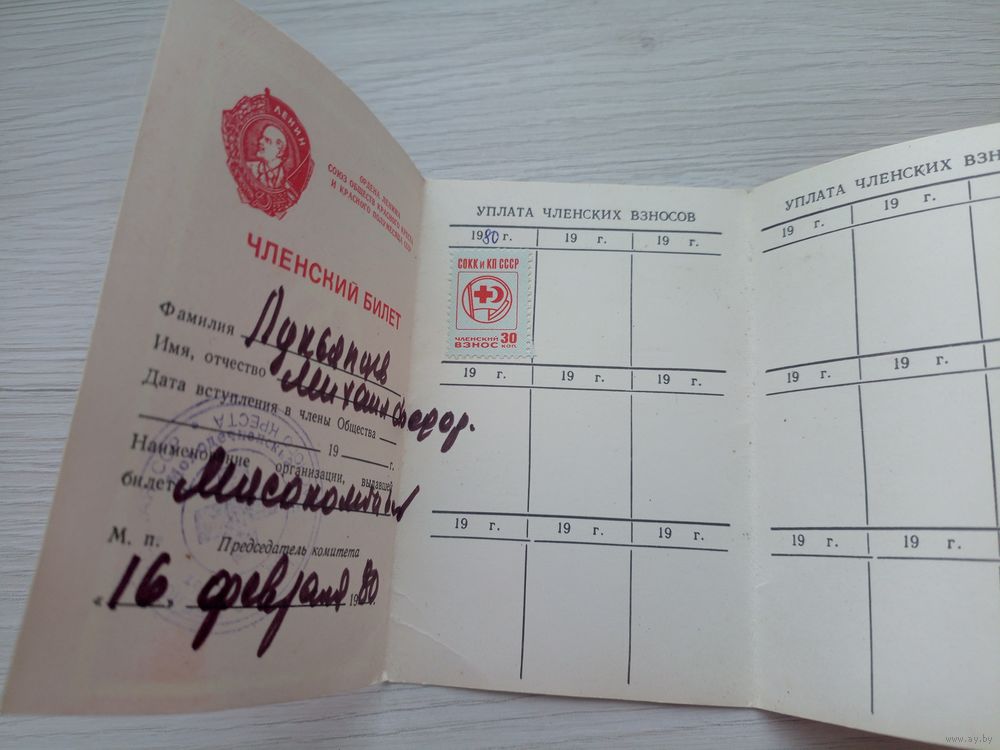 ЛЕНИН
ОРДЕНА ЛЕНИНА
СОЮЗ ОБЩЕСТВ КРАСНОГО КРЕСТА
И КРАСНОГО ПОЛУМЕСЯЦА СССР
ЧЛЕНСКИЙ БИЛЕТ
Фамилия
Имя, отчество Михаил Федор.
Дата вступления в члены Общества
19 г.
Наименование организации, выдавшей
билет
М. п. Председатель комитета
« 16 » февраля 1980 г.
КРЕСТА
УПЛАТА ЧЛЕНСКИХ ВЗНОСОВ
1980 г. 19 г. 19 г.
СОКК и КП СССР
ЧЛЕНСКИЙ
ВЗНОС 30 КОП
19 г. 19 г. 19 г.
19 г. 19 г. 19 г.
УПЛАТА ЧЛЕНСКИХ ВЗН
19 г. 19 г.
19 г. 19 г.
19 г. 19 г.
www.ay.by